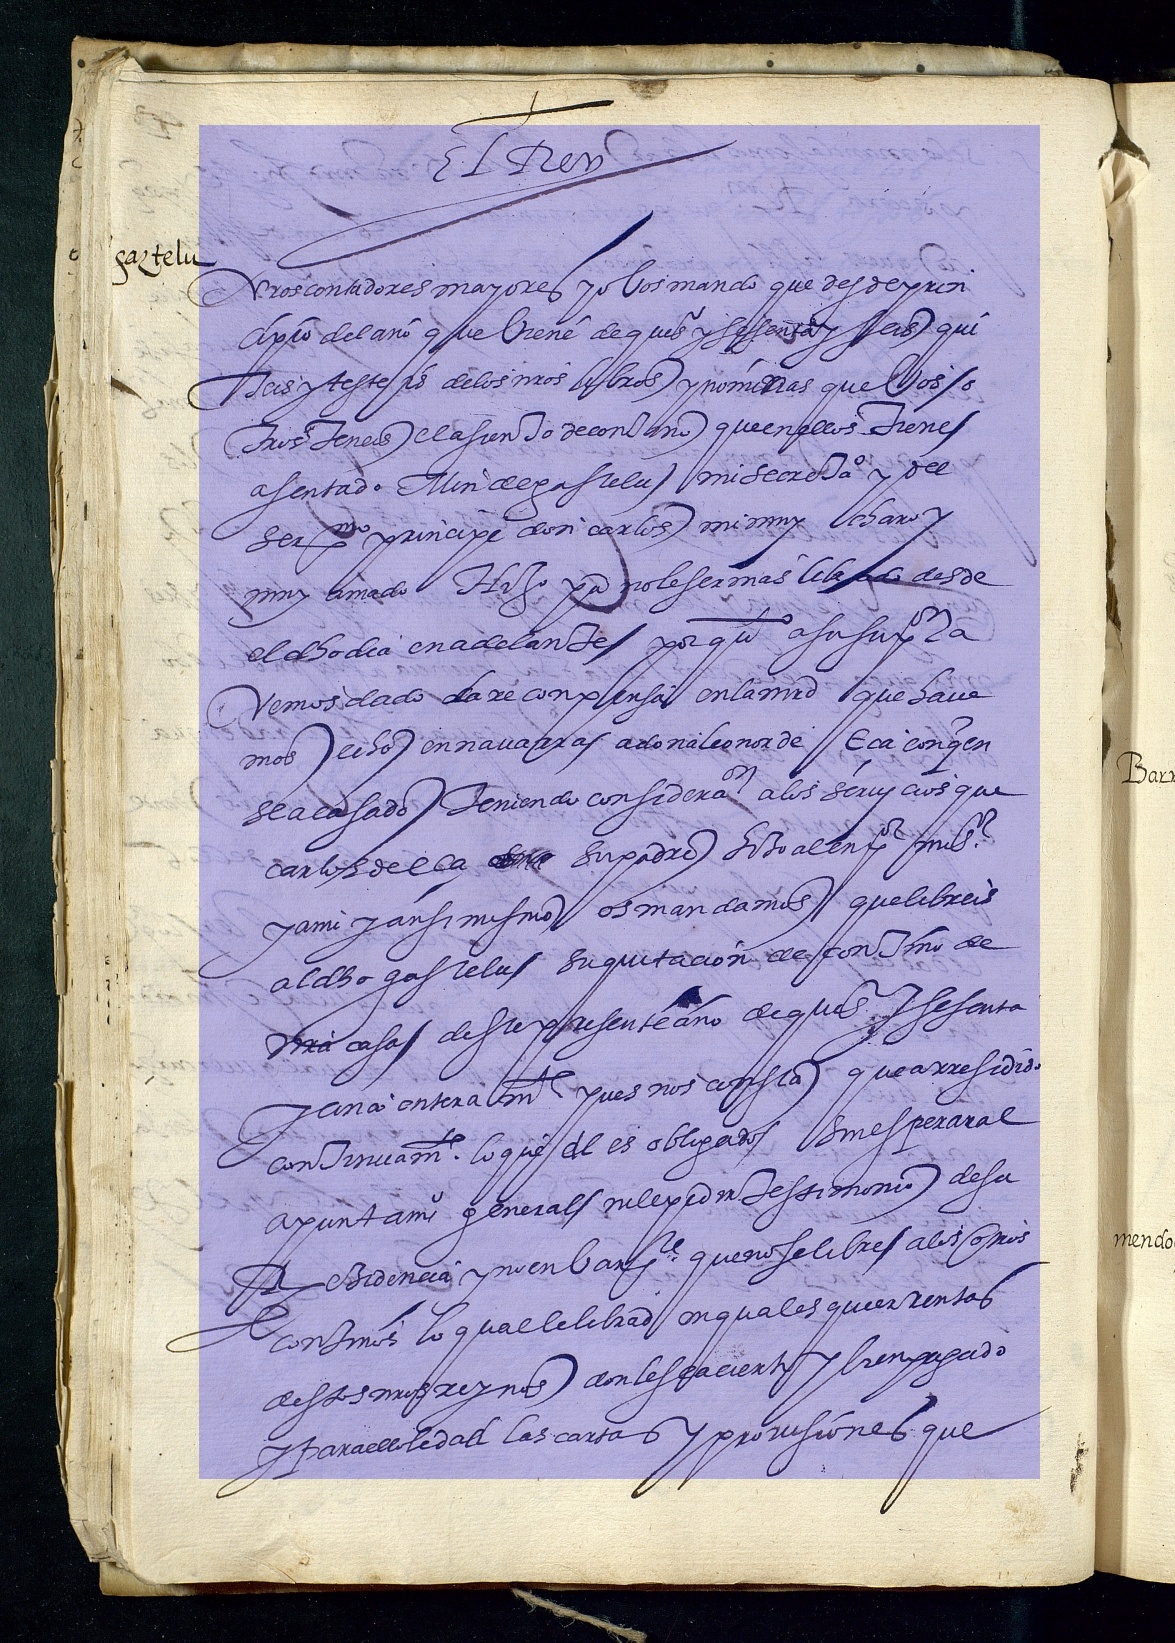 El Rey
gaztelu
Nros contadores mayores yo vos mando que desde prin
cipio del año que viene de quis y sesenta y seis qui
teis y testeis de los nros libros y nóminas que vos o
tros teneis el asiento de contino que en ellos tiene
asentado Min de gastelu mi secreto y del
sermo principe don carlos mi muy charo y
muy amado Hijo pa no le ser mas librado desde
el dho dia en adelante por qto a su supon la
hemos dado la recompensa en la mrd que have
mos echo en navarra a dona leonor de Eça con qen
se a casado teniendo consideraon a los servicios que
carlos de eça su padre hizo al empor mi sor
y a mi y ansi mesmo os mandamos que libreis
al dho gastelu su quitación de contino de
nra casa deste presente año de quis y sesenta
y cinco enteramte pues nos consta que a rresidido
continuamte lo que él es obligado sin esperar al
apuntamio general ni le pedir testimonio de su
Residencia y no enbargte que no se libre a los otros
continos lo qual le librad en quales quier rentas
destos nros reynos donde sea cierto y bien pagado
y para ello le dad las cartas y provisiones que
Barr
mendo